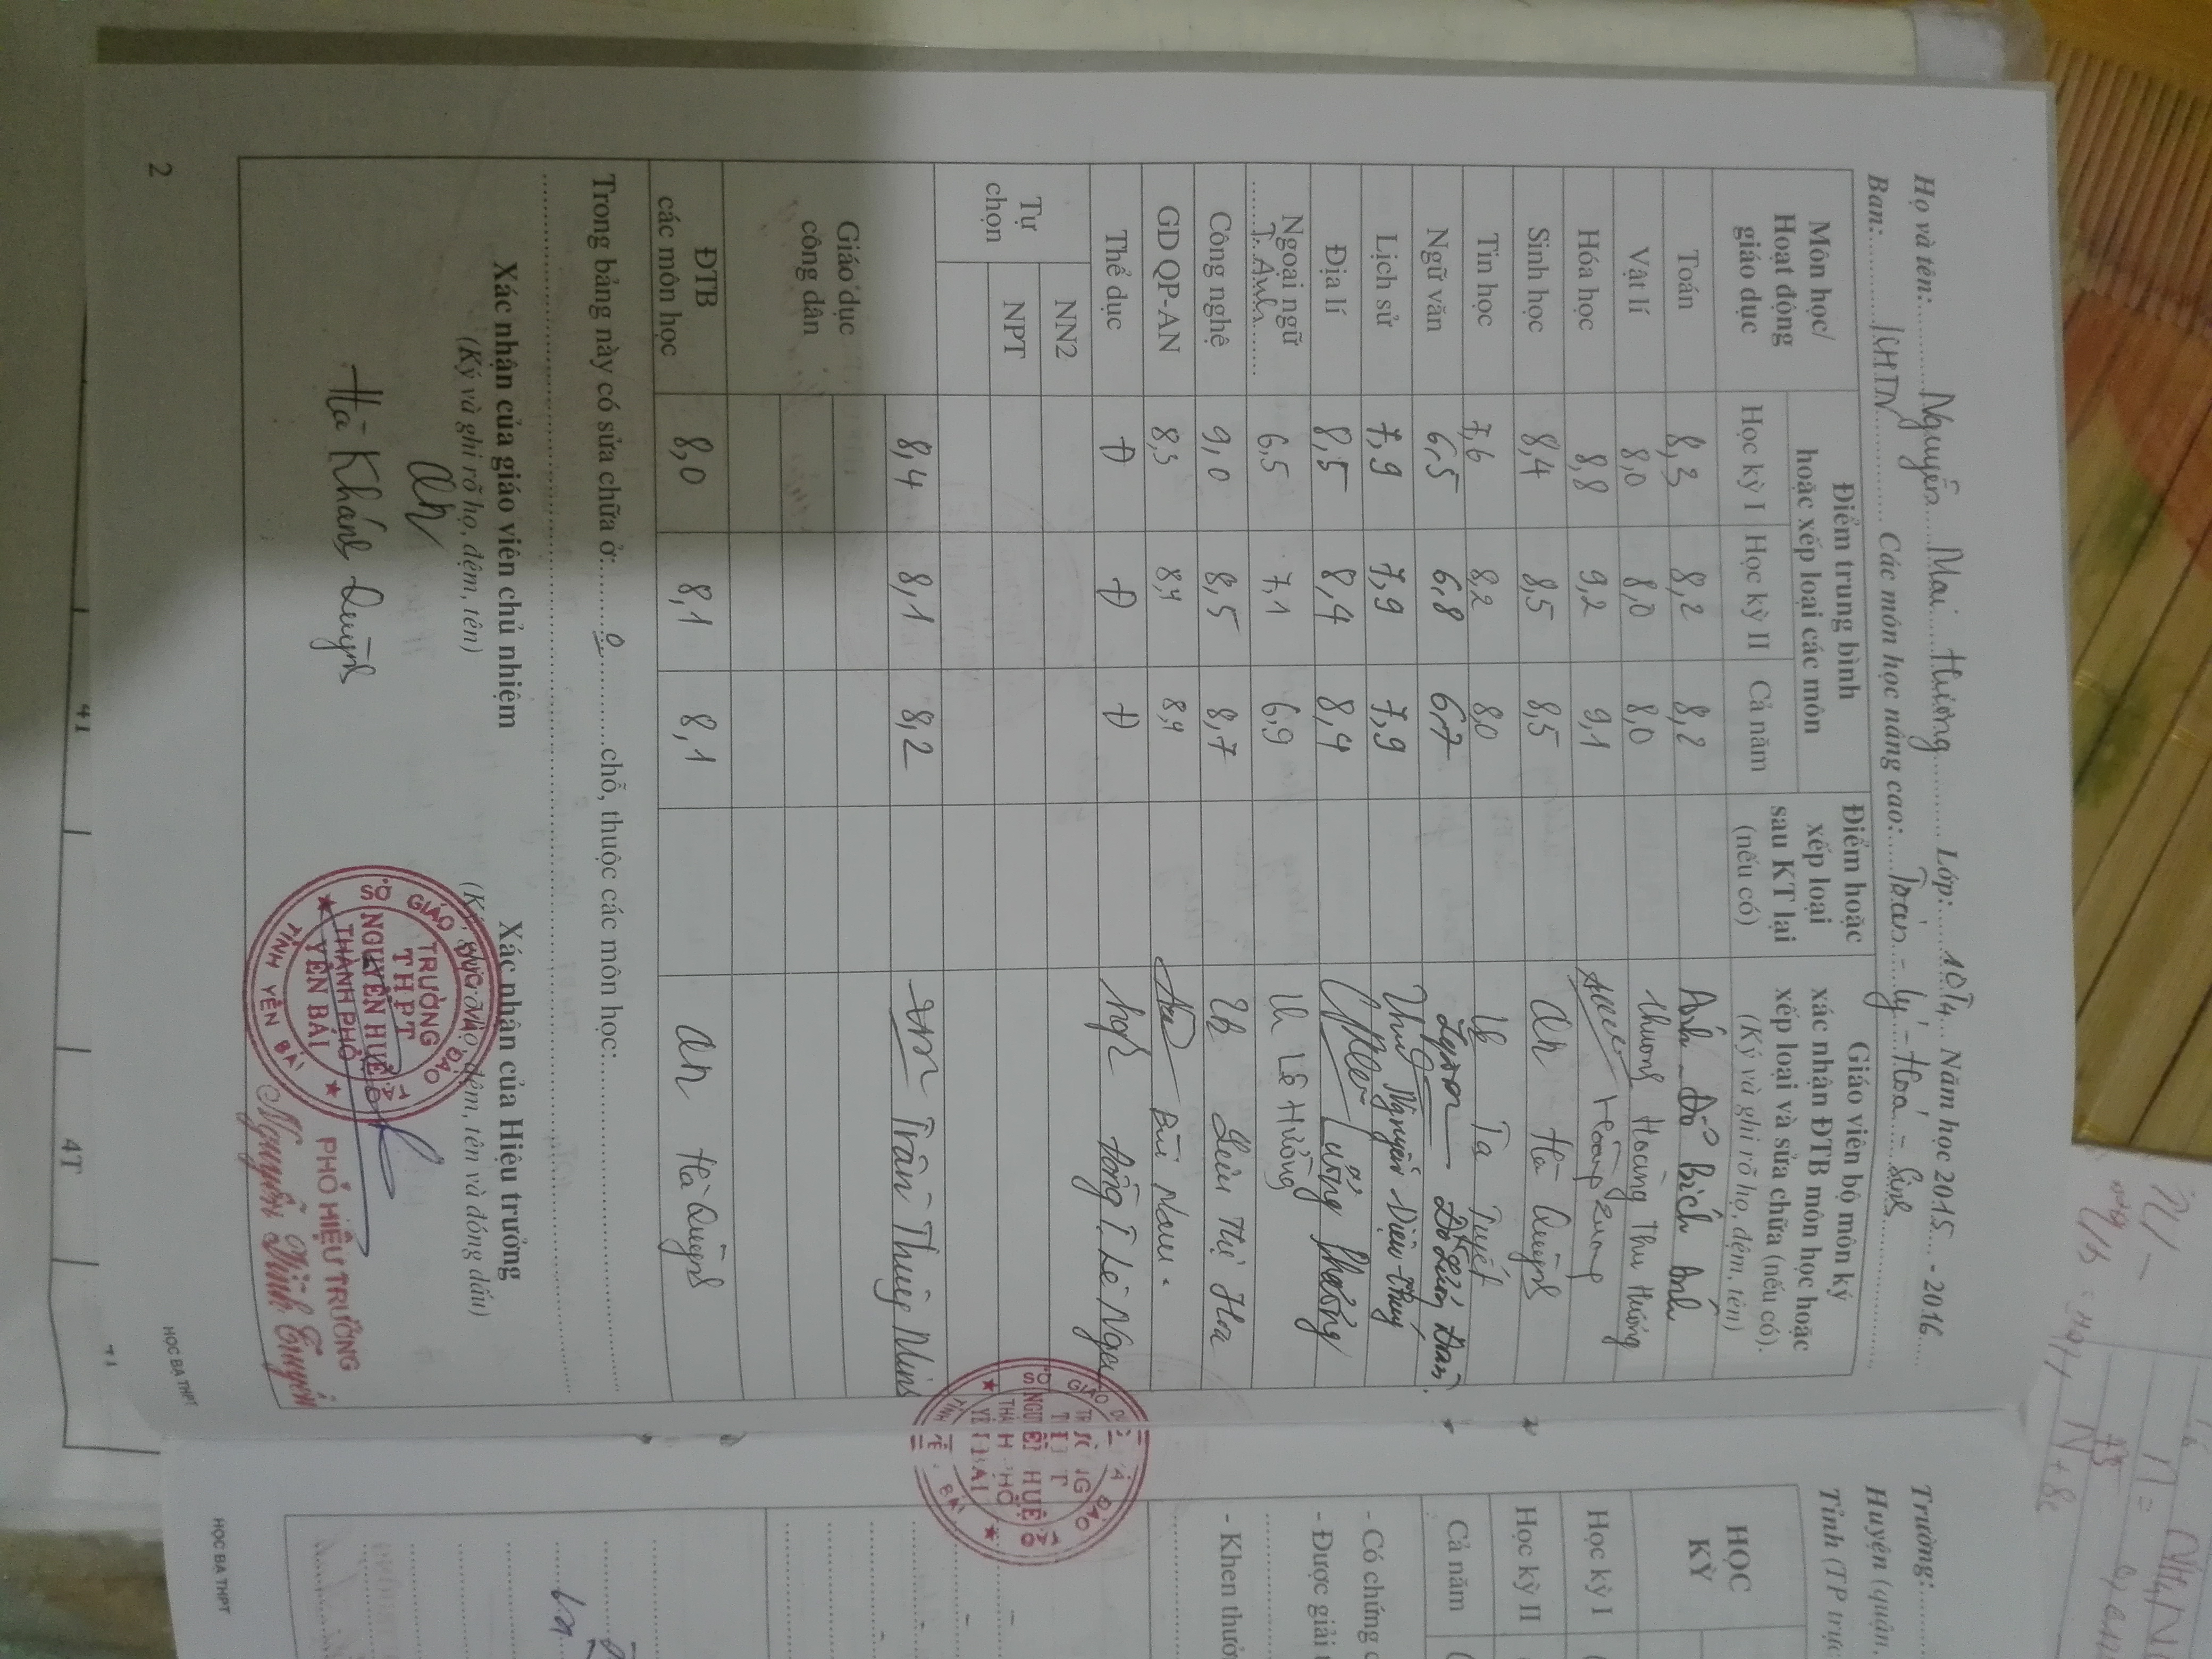 Họ và tên: Nguyễn Mai Hương Lớp: 10T4 Năm học 2015 - 2016
Ban: KHTN Các môn học nâng cao: Toán - lý - Hóa - Sinh
Môn học/ Hoạt động giáo dục
Điểm trung bình hoặc xếp loại các môn
Học kỳ I Học kỳ II Cả năm
Điểm hoặc xếp loại sau KT lại (nếu có)
Giáo viên bộ môn ký xác nhận ĐTB môn học hoặc xếp loại và sửa chữa (nếu có).
(Ký và ghi rõ họ, đệm, tên)
Toán 8,3 8,2 8,2 Đỗ Bích Ánh
Vật lí 8,0 8,0 8,0 Hoàng Thu Hương
Hóa học 8,8 9,2 9,1
Sinh học 8,4 8,5 8,5 Hà Quỳnh
Tin học 7,6 8,2 8,0 Tạ Tuyết
Ngữ văn 6,5 6,8 6,7
Lịch sử 7,9 7,9 7,9 Nguyễn Diệu Thúy
Địa lí 8,5 8,4 8,4 Lương Phương
Ngoại ngữ T. Anh 6,5 7,1 6,9 Lê Hường
Công nghệ 9,0 8,5 8,7 Lưu Thị Hoa
GD QP-AN 8,3 8,4 8,4 Bùi Nam
Thể dục Đ Đ Đ
Tự chọn
NN2
NPT
Giáo dục công dân 8,4 8,1 8,2 Trần Thùy Ninh
ĐTB các môn học 8,0 8,1 8,1 Hà Quỳnh
Trong bảng này có sửa chữa ở: 0 chỗ, thuộc các môn học:
Xác nhận của giáo viên chủ nhiệm
(Ký và ghi rõ họ, đệm, tên)
Hà Khánh Quỳnh
Xác nhận của Hiệu trưởng
đệm, tên và đóng dấu)
SỞ GIÁO DỤC VÀ ĐÀO TẠO
TRƯỜNG
THPT
NGUYỄN HUỆ
THÀNH PHỐ
YÊN BÁI
TỈNH YÊN BÁI
PHÓ HIỆU TRƯỞNG
2
HỌC BẠ THPT
Trường:
Huyện (quận,
Tỉnh (TP trực
HỌC KỲ
Học kỳ I
Học kỳ II
Cả năm
- Có chứng
- Được giải
- Khen thưở
HỌC BẠ THPT
4T